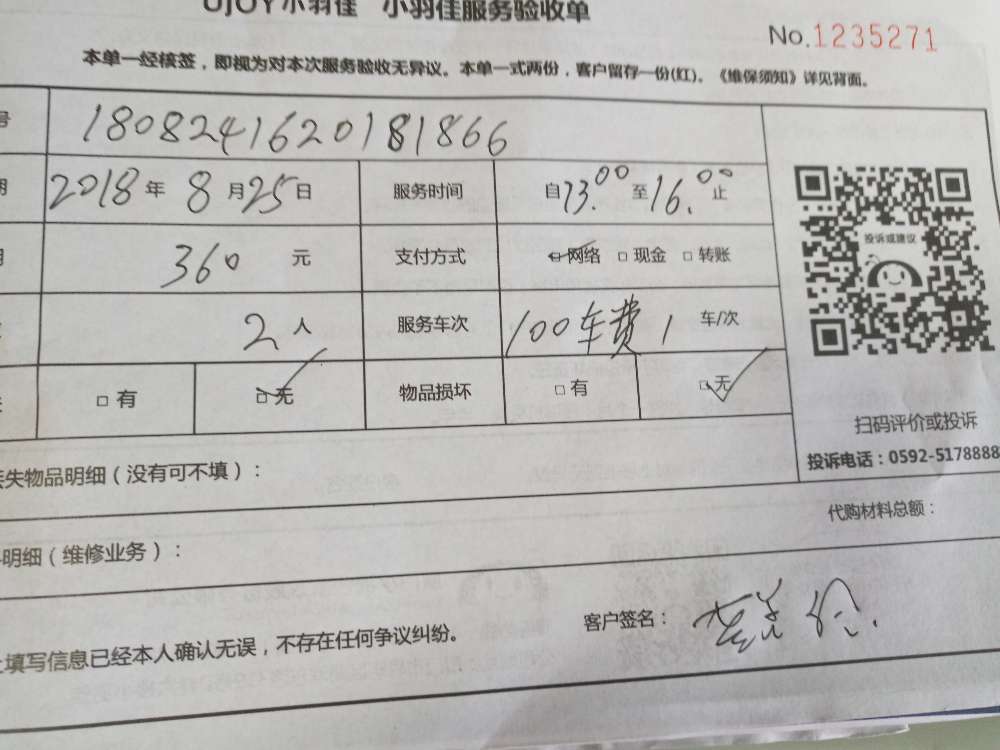 UJOY小羽佳 小羽佳服务验收单
No.1235271
本单一经核签，即视为对本次服务验收无异议。本单一式两份，客户留存一份(红)。《维保须知》详见背面。
号 1808241620181866
期 2018年8月25日 服务时间 自13.00至16.00止
用 360元 支付方式 □网络 □现金 □转账
2人 服务车次 100车费1 车/次
□有 □无 物品损坏 □有 □无
投诉或建议
扫码评价或投诉
投诉电话：0592-5178888
丢失物品明细（没有可不填）：
代购材料总额：
明细（维修业务）：
客户签名：
上填写信息已经本人确认无误，不存在任何争议纠纷。